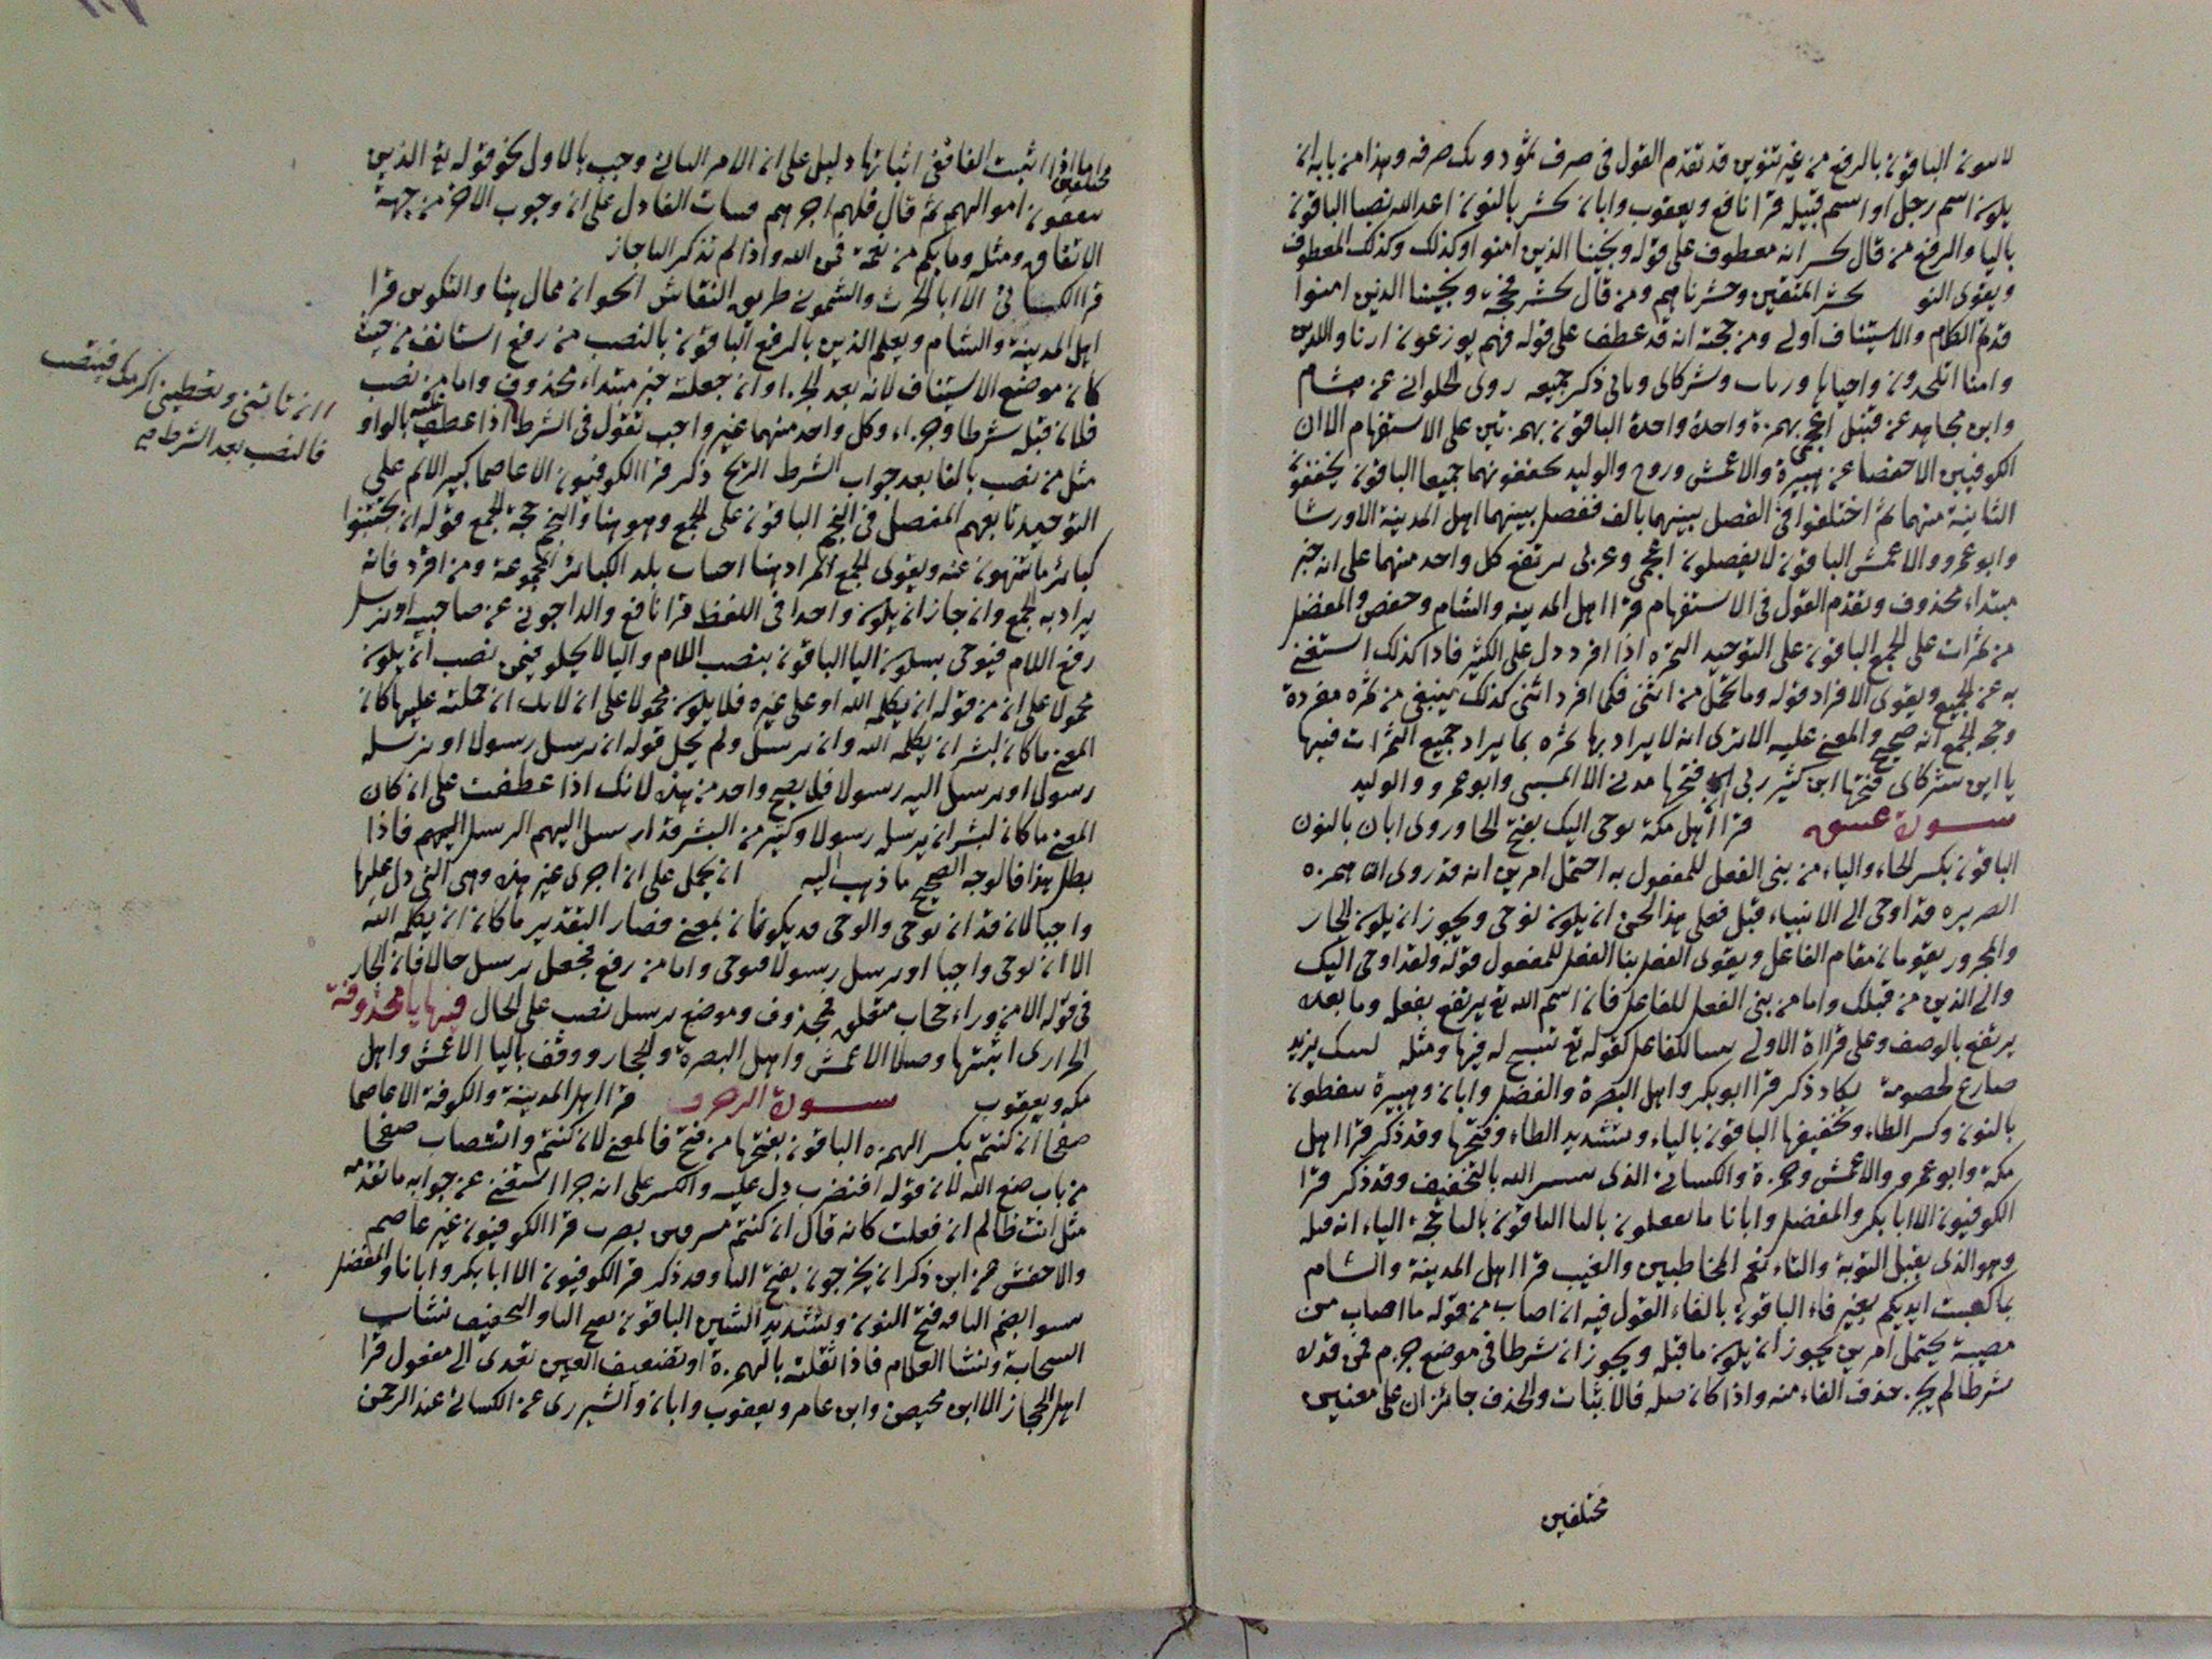 الباقون بالرفع من غير تنوين قد تقدم القول في صرف ثمود وترك صرفه وهذا من بابه ان
يكون اسم رجل او اسم قبيلة قرا نافع ويعقوب وابان نحشر بالنون اعدا الله نصبا الباقون
باليا والرفع من قال نحشر انه معطوف على قوله ونجينا الذين امنوا وكذلك وكذلك المعطوف
ويقوى النو نحشر المتقين وحشرناهم ومن قال يحشر فحجته ونجينا الذين امنوا
قد تم الكلام والاستيناف اولى ومن حجته انه قد عطف على قوله فهم يوزعون ارنا واللذين
وامنا اتلحدون واحياها وربات وشركائى ونأى ذكر جميعه روى الحلواني عن هشام
وابن مجاهد عن قنبل اعجمى بهمزة واحدة واحدة الباقون بهمزتين على الاستفهام الا ان
الكوفيين الا حفصا عن هبيرة والاعمش وروح والوليد يحققونهما جميعا الباقون يخففون
الثانية منهما ثم اختلفوا في الفصل بينهما بالف ففصل بينهما اهل المدينة الا ورشا
وابو عمرو والاعمش الباقون لا يفصلون اعجمى وعربى يرتفع كل واحد منهما على انه خبر
مبتداء محذوف وتقدم القول في الاستفهام قرا اهل المدينة والشام وحفص والمفضل
من ثمرات على الجمع الباقون على التوحيد الثمرة اذا افرد دل على الكثير فاذا كذلك استغنى
به عن الجميع ويقوى الافراد قوله وما تحمل من انثى فكما افرد انثى كذلك ينبغي من ثمرة مفردة
وجه الجمع انه صحيح والمعنى عليه الا ترى انه لا يراد بها ثمرة بما يراد جميع الثمرات فيها
يا اين شركائى فتحها ابن كثير ربى ان فتحها مدني الا المسيبى وابو عمرو والوليد
سورة عسق قرا اهل مكة يوحى اليك بفتح الحا وروى ابان بالنون
الباقون بكسر الحاء والياء من بنى الفعل للمفعول به احتمل امرين انه قد روى
قد اوحى الى الانبياء قبل فعلى هذا يحسن ان يكون يوحى ويجوز ان يكون الجار
والمجرور يقومان مقام الفاعل ويقوى الفعل بنا الفعل للمفعول قوله ولقد اوحى اليك
والى الذين من قبلك واما من بنى الفعل للفاعل فان اسم الله تع يرتفع بفعله وما بعده
يرتفع بالوصف وعلى قراءة الاولى كقوله تع تسبح له فيها ومثله ليبك يزيد
ضارع لخصومة يكاد ذكر قرا ابو بكر واهل البصرة والمفضل وابان وهبيرة ينفطرن
بالنون وكسر الطاء وتخفيفها الباقون بالياء وتشديد الطاء وفتحها وقد ذكر قرا اهل
مكة وابو عمرو والاعمش وحمزة والكسائى الذى يبشر الله بالتخفيف وقد ذكر قرا
الكوفيون الا ابا بكر والمفضل وابانا ما تفعلون بالتا الباقون باليا حجة الياء ان قبله
وهو الذى يقبل التوبة والتاء تعم المخاطبين والغيب قرا اهل المدينة والشام
بما كسبت ايديكم بغير فاء الباقون بالفاء القول فيه ان اصاب من قوله ما اصاب من
مصيبة يحتمل امرين يجوز ان يكون ما قبله ويجوز ان شرطا في موضع جزم فمن قدره
شرطا لم يجز حذف الفاء منه واذا كان صلة فالاثبات والحذف جائزان على معنيين
مختلفين
مختلفين
اما اذا اثبت الفا ففي اثباتها دليل على ان الامر الثاني وجب بالاول نحو قوله تع الذين
ينفقون اموالهم ثم قال فلهم اجرهم فثبات الفا دل على ان وجوب الاجر من جهة
الانفاق ومثله وما بكم من نعمة فمن الله واذا لم تذكر الفا جاز
قرا الكسائى الا ابا الحرث والشمونى طريق النقاش الجوار ممال هنا والتكوير قرا
اهل المدينة والشام ويعلم الذين بالرفع الباقون بالنصب من رفع استانف من حيث
كان موضع الاستيناف لانه بعد الجزاء وان جعلته خبر مبتداء محذوف واما من نصب
فلان قبله شرطا وجزاء وكل واحد منهما غير واجب تقول في الشرط اذا عطفت عليه بالواو
ان تاتنى وتعطينى اكرمك فينتصب
فالنصب بعد الشرط فيه
مثل من نصب بالفا بعد جواب الشرط الريح ذكر قرا الكوفيون الا عاصما كبير الاثم على
التوحيد تابعهم المفضل في النجم الباقون على الجمع وهو هنا والنجم حجة الجمع قوله ان تجتنبوا
كبائر ما تنهون عنه ويقوى الجمع المراد هنا اجتناب تلك الكبائر المجموعة ومن افرد فانه
يراد به الجمع وان جاز ان يكون واحدا في اللفظ قرا نافع والداجونى عن صاحبيه او يرسل
رفع اللام فيوحى بسكون اليا الباقون بنصب اللام واليا لا يخلو فيمن نصب ان يكون
محمولا على ان من قوله ان يكلمه الله او على غيره فلا يكون محمولا على ان لانك ان حملته عليها كان
المعنى ما كان لبشر ان يكلمه الله وان يرسل ولم يخل قوله ان يرسل رسولا او يرسله
رسولا او يرسل اليه رسولا فلا يصح واحد من هذه لانك اذا عطفت على ان كان
المعنى ما كان لبشر ان يرسله رسولا وكثير من البشر قد ارسل اليهم الرسل اليهم فاذا
بطل هذا فالوجه الصحيح ما ذهب اليه ان يحمل على ان اخرى غير هذه وهى التى دل عليها
واحيا لان قد ان يوحى والوحى قد يكونان بمعنى فصار التقدير ما كان ان يكلمه الله
الا ان يوحى واحيا او يرسل رسولا فيوحى واما من رفع فجعل يرسل حالا فان الجار
في قوله الا من وراء حجاب متعلق بمحذوف وموضع يرسل نصب على الحال فيها يا محذوفة
الجوارى اثبتها وصلا الاعمش واهل البصرة والحجاز ووقف باليا الاعمش واهل
مكه ويعقوب سورة الزخرف قرا اهل المدينة والكوفة الا عاصما
صفحا ان كنتم بكسر الهمزه الباقون بفتحها من فتح فالمعنى لان كنتم وانتصاب صفحا
من باب صنع الله لان قوله افنضرب دل عليه والكسر على انه جزا استغنى عن جوابه ما تقدمه
مثل انت ظالم ان فعلت كانه قال ان كنتم مسرفين نضرب قرا الكوفيون غير عاصم
والاخفش عن ابن ذكوان يخرجون بفتح اليا وقد ذكر قرا الكوفيون الا ابا بكر وابانا والمفضل
ينشوا بضم اليا وفتح النون وتشديد الشين الباقون بفتح اليا والتخفيف نشات
السحابة ونشا الغلام فاذا نقلته بالهمزة او تضعيف العين تعدى الى مفعول قرا
اهل الحجاز الا ابن محيصن وابن عامر ويعقوب وابان والشيزرى عن الكسائى عند الرحمن